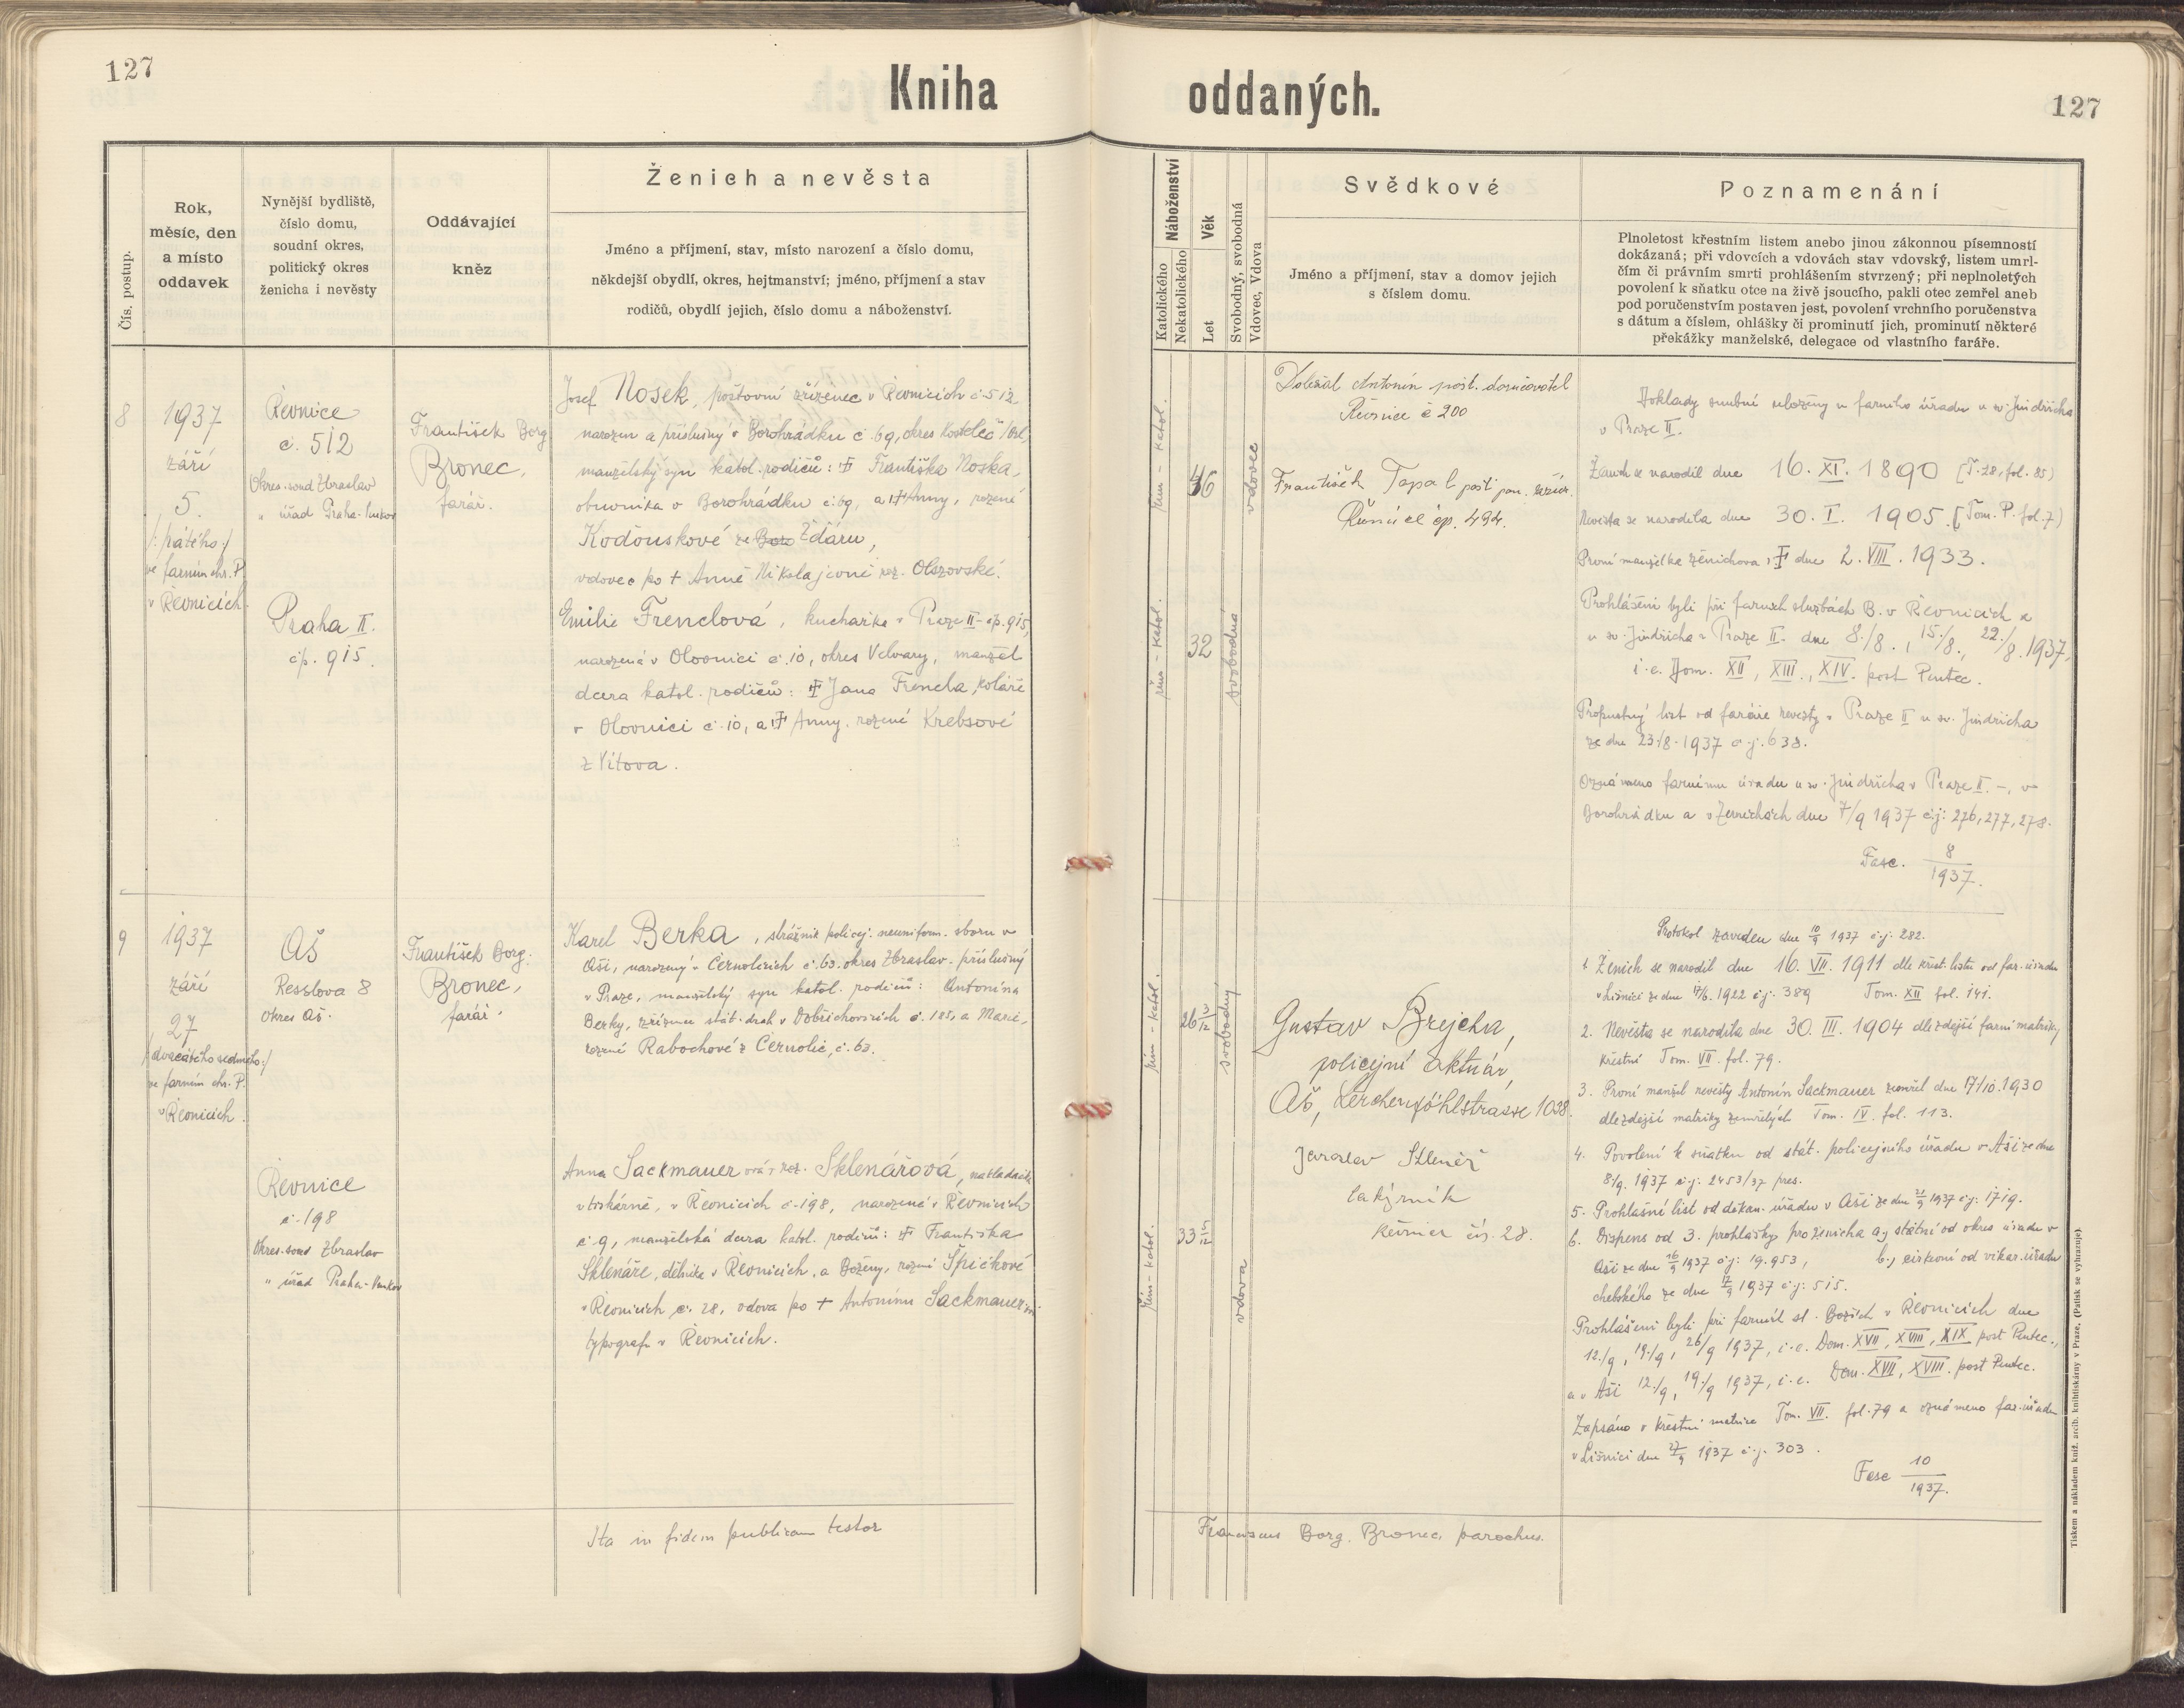 127
Kniha oddaných.
127
Čís. postup.
Rok,
měsíc, den
a místo
oddavek
Nynější bydliště,
číslo domu,
soudní okres,
politický okres
ženicha i nevěsty
Oddávající
kněz
Ženich a nevěsta
Jméno a příjmení, stav, místo narození a číslo domu,
někdejší obydlí, okres, hejtmanství; jméno, příjmení a stav
rodičů, obydlí jejich, číslo domu a náboženství.
Náboženství
Katolického
Nekatolického
Věk
Let
Svobodný, svobodná
Vdovec, Vdova
Svědkové
Jméno a příjmení, stav a domov jejich
s číslem domu.
Poznamenání
Plnoletost křestním listem anebo jinou zákonnou písemností
dokázaná; při vdovcích a vdovách stav vdovský, listem umrl-
čím či právním smrti prohlášením stvrzený; při neplnoletých
povolení k sňatku otce na živě jsoucího, pakli otec zemřel aneb
pod poručenstvím postaven jest, povolení vrchního poručenstva
s dátum a číslem, ohlášky či prominutí jich, prominutí některé
překážky manželské, delegace od vlastního faráře.
8
1937
září
5.
/: pátého :/
ve farním chr. P.
v Řevnicích
Řevnice
č. 512
Okres. soud Zbraslav
" úřad Praha-venkov
Praha II.
čp. 915.
František Borg.
Bronec,
farář.
Josef Nosek, poštovní zřízenec v Řevnicích č. 512
narozen a příslušný v Borohrádku č. 69, okres Kostelec /Orl.,
manželský syn katol. rodičů: † Františka Noska,
obuvníka v Borohrádku č. 69, a † Anny, rozené
Kodouskové ze Boro Žďáru,
vdovec po † Anně Nikolajevně roz. Olszovské.
Emilie Frenclová, kuchařka v Praze II - čp. 915,
narozená v Olovnici č. 10, okres Velvary, manžel.
dcera katol. rodičů: † Jana Frencla, koláře
v Olovnici č. 10, a † Anny, rozené Krebsové
z Vítova.
řím - katol.
46
vdovec
řím - katol.
32
svobodná
Doležal Antonín pošt. doručovatel
Řevnice č 200
František Topal pošt. pom. zříz.
Řevnice čp. 494.
Doklady snubní uloženy u farního úřadu u sv. Jindřicha
v Praze II.
Ženich se narodil dne 16. XI. 1890 [T. 28, fol. 85)
Nevěsta se narodila dne 30. I. 1905. [Tom. P. fol. 7)
První manželka ženichova, † dne 2. VIII. 1933.
Prohlášeni byli při farních službách B. v Řevnicích a
u sv. Jindřicha v Praze II. dne 8./8., 15./8., 22./8. 1937,
i. e. Dom. XII, XIII., XIV. post Pentec.
Propustný list od faráře nevěsty v Praze II u sv. Jindřicha
ze dne 23./8. 1937 č. j. 638.
Oznámeno farnímu úřadu u sv. Jindřicha v Praze II. -, v
Borohrádku a v Zeměchách dne 7/9 1937 č. j: 276, 277, 278.
Fasc. 8/1937.
9
1937
září
27
/: dvacátého sedmého :/
ve farním chr. P.
v Řevnicích.
Aš
Resslova 8
okres Aš.
Řevnice
č. 198
Okres. soud Zbraslav
" úřad Praha-venkov
František Borg.
Bronec,
farář.
Karel Berka, strážník policej. neuniform. sboru v
Aši, narozený v Černolicích č. 63. okres Zbraslav. příslušný
v Praze, manželský syn katol. rodičů: Antonína
Berky, zřízence stát. drah v Dobřichovicích č. 185, a Marie,
rozené Rabochové z Černolic, č. 63.
Anna Sackmauerová, roz. Sklenářová, nakladačka
v tiskárně, v Řevnicích č. 198, narozená v Řevnicích
č 9, manželská dcera katol. rodičů: † Františka
Sklenáře, dělníka v Řevnicích, a Boženy, rozené Špičkové
v Řevnicích č. 28, vdova po † Antonínu Sackmauerovi
typografu v Řevnicích.
řím - katol.
26 3/12
svobodný
řím - katol.
33 5/12
vdova
Gustav Brejcha,
policejní aktuár,
Aš, Lerchenpöhlstrasse 1038.
Jaroslav Sklenář
lakýrník
Řevnice čís. 28.
Protokol zaveden dne 10/9 1937 č. j: 282.
1. Ženich se narodil dne 16. VII. 1911 dle křest. listu od far. úřadu
v Líšnici ze dne 17/6. 1922 č. j. 389 Tom. XII fol. 141.
2. Nevěsta se narodila dne 30. III. 1904 dle zdejší farní matriky
křestní Tom. VII. fol. 79.
3. První manžel nevěsty Antonín Sackmauer zemřel dne 17/10. 1930
dle zdejší matriky zemřelých Tom. IV. fol. 113.
4. Povolení k sňatku od stát. policejního úřadu v Aši ze dne
8./9. 1937 č. j. 2453/37 pres.
5. Prohlašní list od děkan. úřadu v Aši ze dne 21/9 1937 č. j: 1719.
6. Dispens od 3. prohlášky pro ženicha a) státní od okres. úřadu v
Aši ze dne 16/9 1937 č. j: 19.953, b.) církevní od vikar. úřadu
chebského ze dne 17/9 1937 č. j: 515.
Prohlášeni byli při farních sl. Božích v Řevnicích dne
12./9, 19./9, 26/9 1937, i. e. Dom. XVII, XVIII, XIX post Pentec.,
a v Aši 12./9, 19./9 1937, i. e. Dom. XVII, XVIII. post Pentec.
Zapsáno v křestní matrice Tom. VII. fol. 79 a oznámeno far. úřadu
v Líšnici dne 27/9 1937 č. j. 303.
Fasc 10/1937.
Ita in fidem publicam testor
Franciscus Borg. Bronec, parochus.
Tiskem a nákladem kníž. arcib. knihtiskárny v Praze. (Patisk se vyhrazuje)